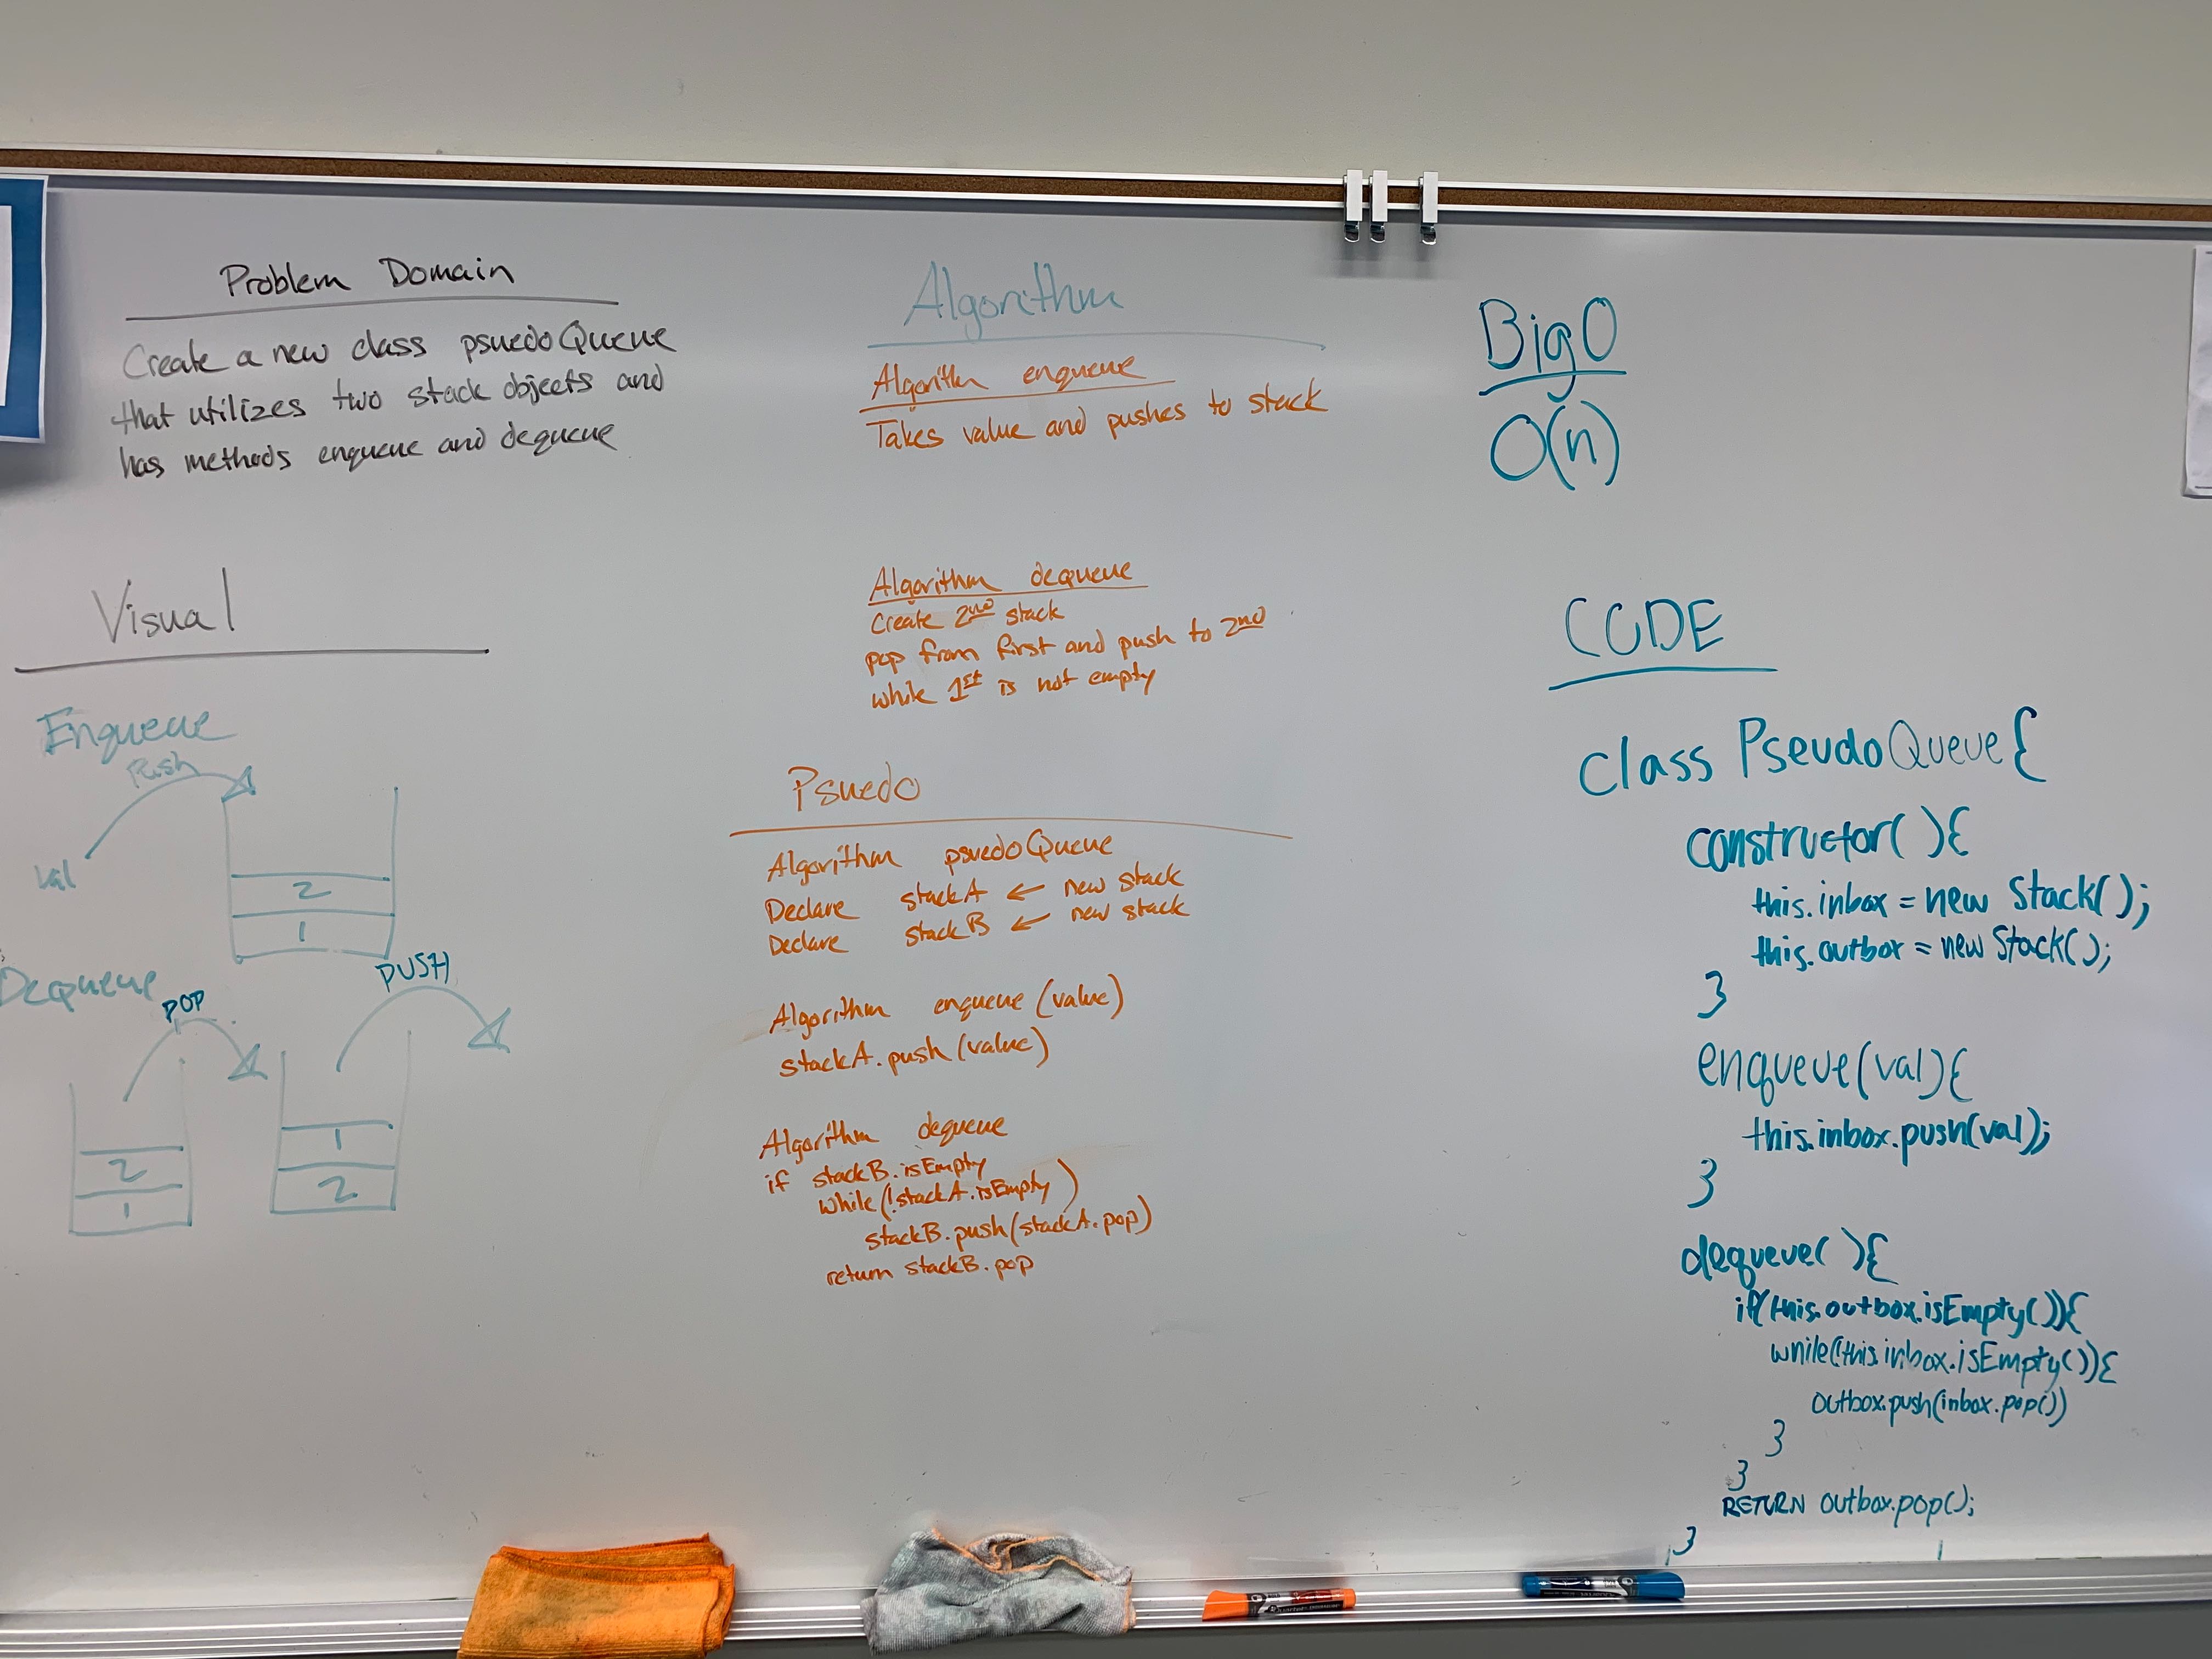 Problem Domain
Create a new class psuedoQueue
that utilizes two stack objects and
has methods enqueue and dequeue
Visual
Enqueue
Push
val
2
1
Dequeue
POP
PUSH
2
1
1
2
Algorithm
Algorithm enqueue
Takes value and pushes to stack
Algorithm dequeue
Create 2nd stack
pop from first and push to 2nd
while 1st is not empty
Psuedo
Algorithm psuedoQueue
Declare stackA ← new stack
Declare stackB ← new stack
Algorithm enqueue (value)
stackA.push (value)
Algorithm dequeue
if stackB.isEmpty
while (!stackA.isEmpty)
stackB.push(stackA.pop)
return stackB.pop
Big O
O(n)
CODE
class PseudoQueue{
constructor(){
this.inbox = new Stack();
this.outbox = new Stack();
}
enqueue(val){
this.inbox.push(val);
}
dequeue(){
if(this.outbox.isEmpty()){
while(!this.inbox.isEmpty()){
outbox.push(inbox.pop())
}
}
RETURN outbox.pop();
}